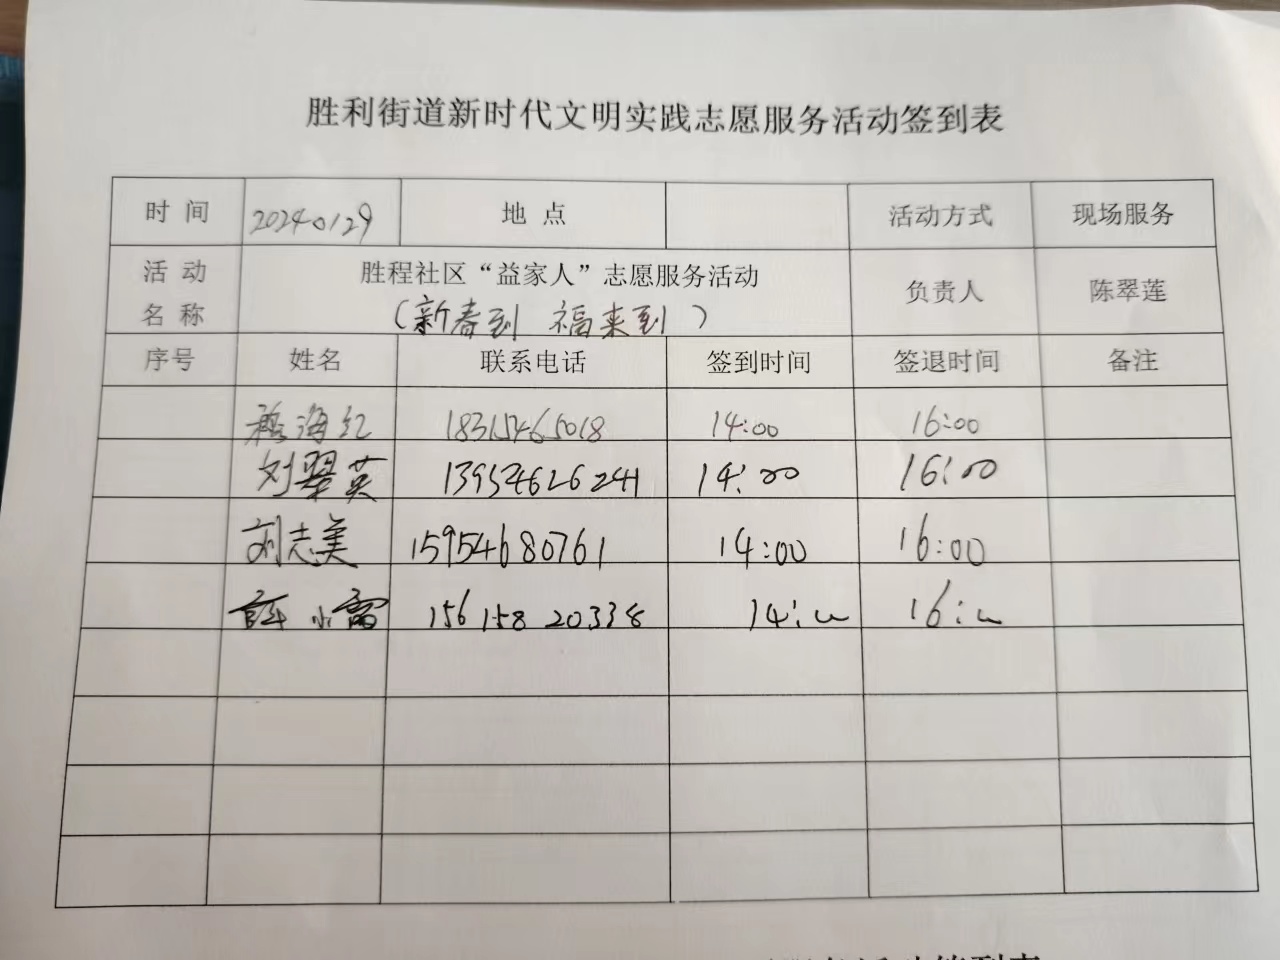 胜利街道新时代文明实践志愿服务活动签到表
时 间 20240129 地 点 活动方式 现场服务
活 动 名 称 胜程社区“益家人”志愿服务活动 负责人 陈翠莲
(新春到 福来到)
序号 姓名 联系电话 签到时间 签退时间 备注
海红 18315465018 14:00 16:00
刘翠英 13954626241 14:00 16:00
刘志美 15954680761 14:00 16:00
15615820338 14: 16: